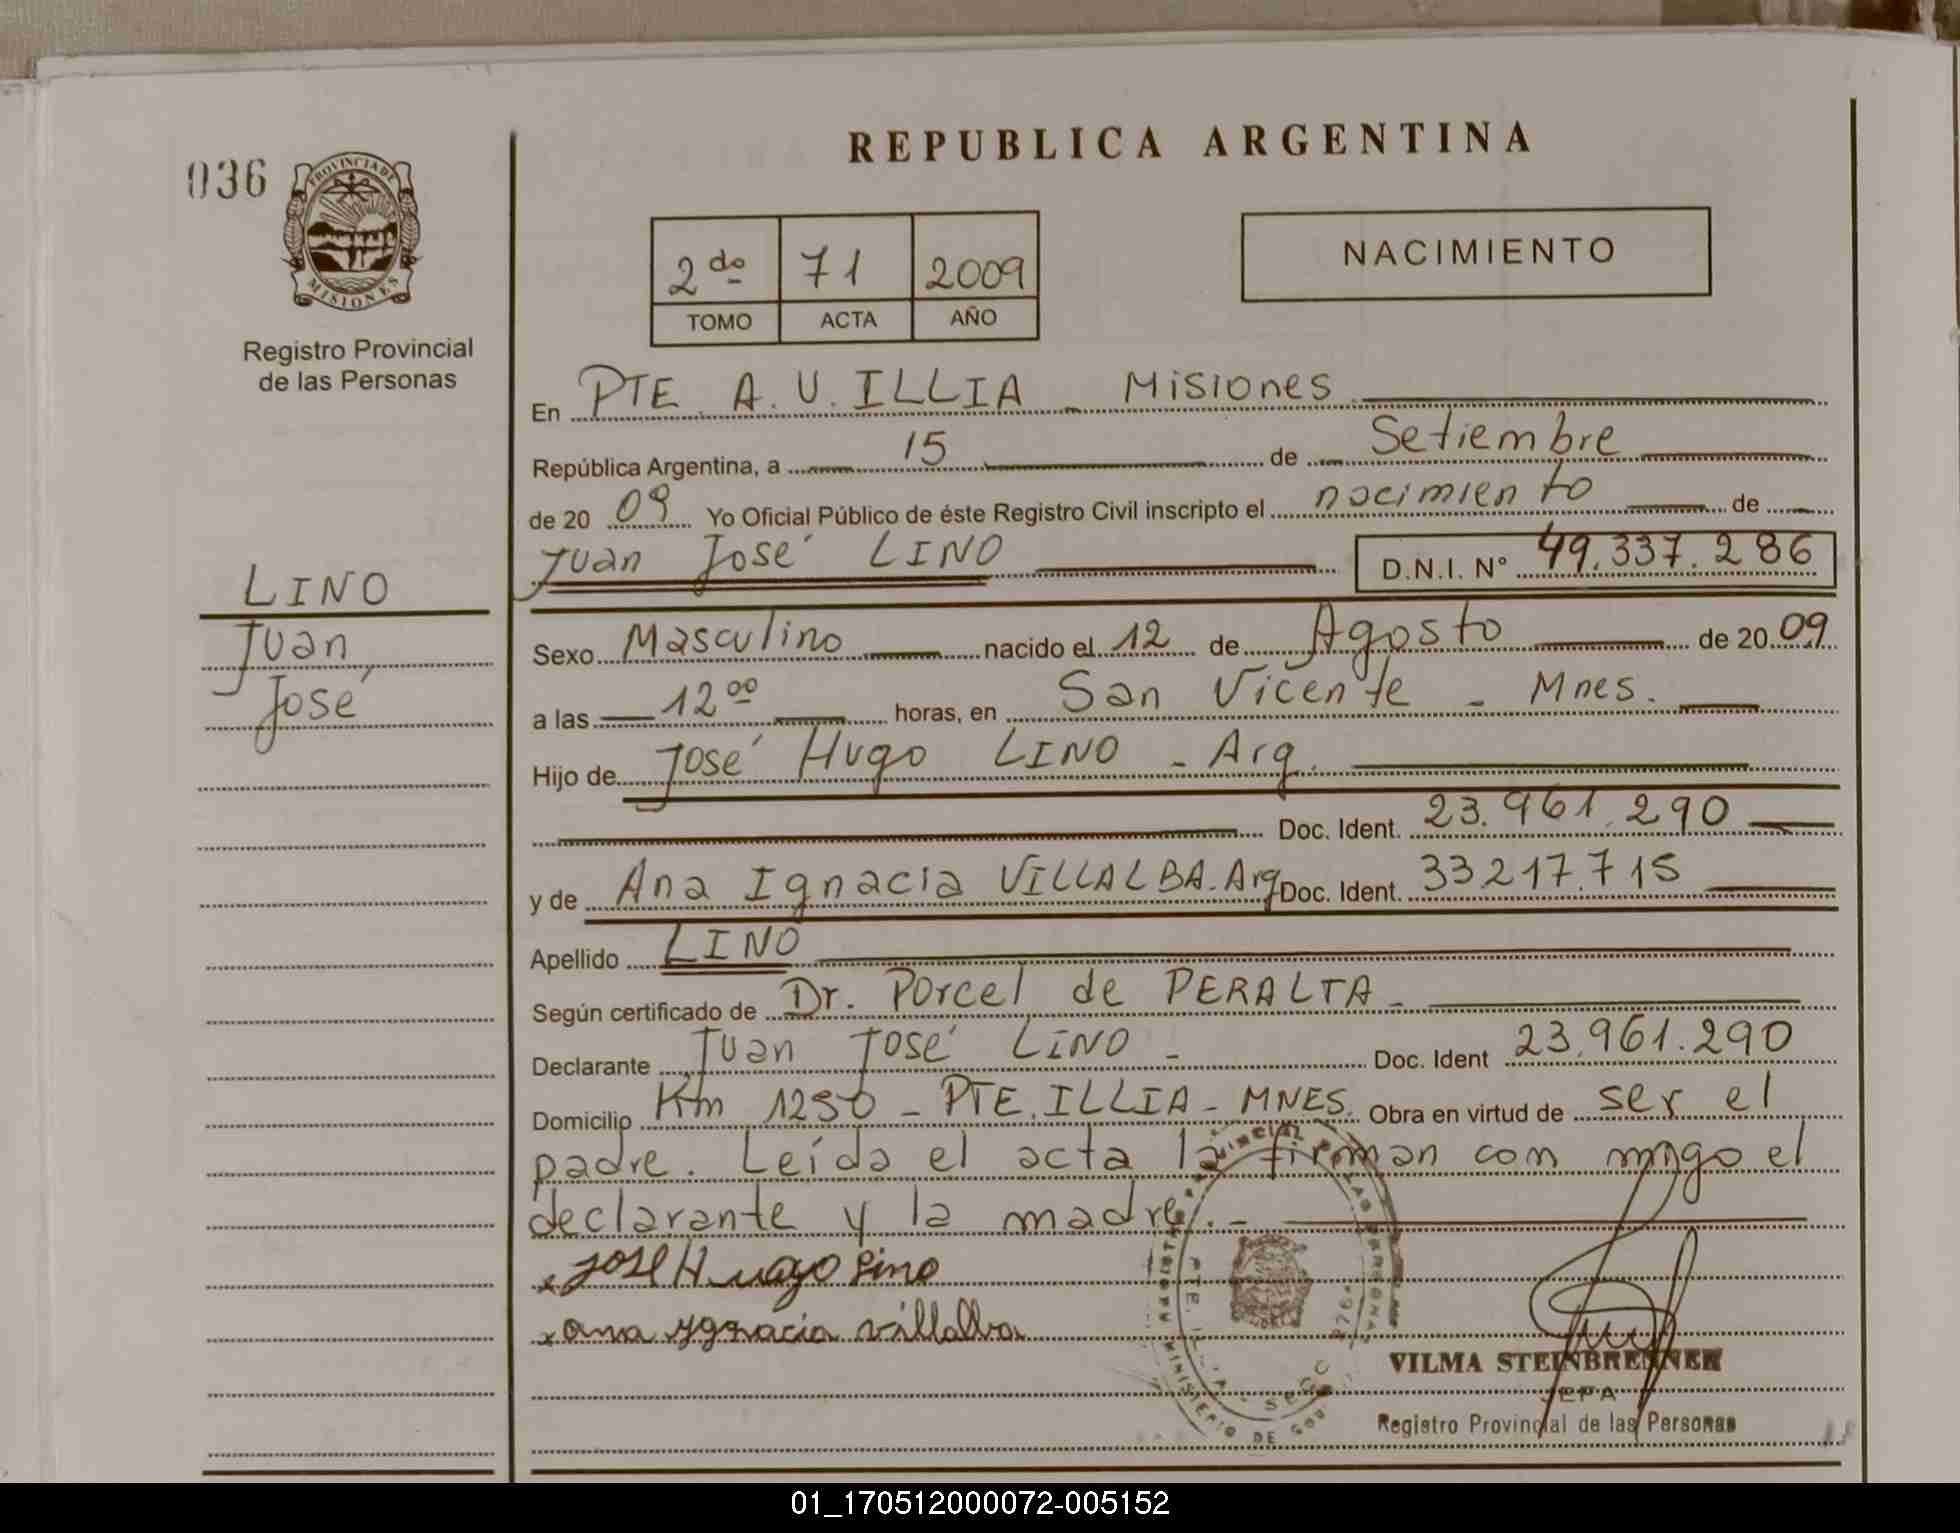 REPUBLICA ARGENTINA
036
PROVINCIA DE
MISIONES
Registro Provincial
de las Personas
2do 71 2009
TOMO ACTA AÑO
NACIMIENTO
LINO
Juan,
José
En PTE A. U. ILLIA - Misiones
República Argentina, a 15 de Setiembre
de 20 09 Yo Oficial Público de éste Registro Civil inscripto el nacimiento de
Juan José LINO D.N.I. N° 49.337.286
Sexo Masculino nacido el 12 de Agosto de 20 09
a las 12 00 horas, en San Vicente - Mnes.
Hijo de José Hugo LINO - Arg.
Doc. Ident. 23.961.290
y de Ana Ignacia VILLALBA. Arg Doc. Ident. 33217.715
Apellido LINO
Según certificado de Dr. Porcel de PERALTA -
Declarante Juan José LINO - Doc. Ident 23.961.290
Domicilio Km 1250 - PTE. ILLIA - MNES. Obra en virtud de ser el
padre. Leída el acta la firman con migo el
declarante y la madre. -
x José Huago Lino
x ana ygnacia villalba
VILMA STEINBRENNER
JEPA
Registro Provincial de las Personas
01_170512000072-005152